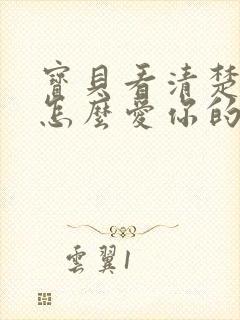 寶貝看清楚
怎麼愛你的
雲翼1